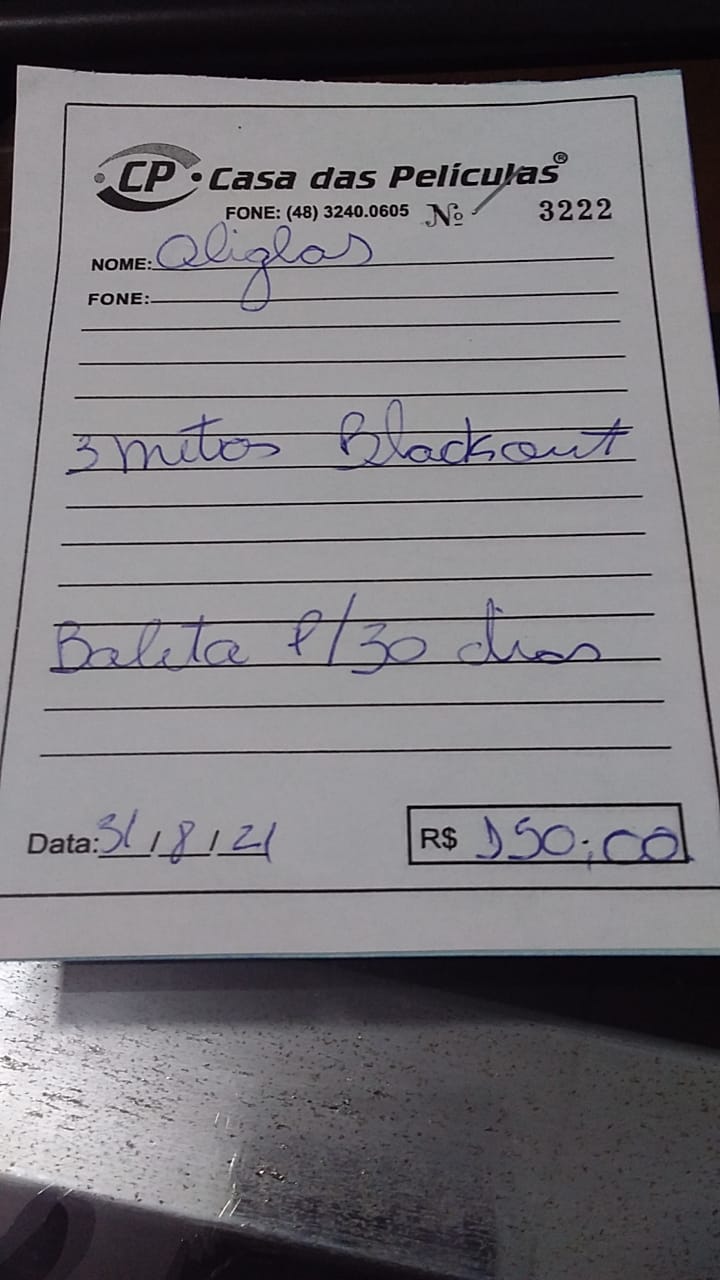 CP Casa das Películas®
FONE: (48) 3240.0605 Nº 3222
NOME: Aliglas
FONE:
3 metros Blackout
Boleta p/30 dias
Data: 31/8/21 R$ 150,00